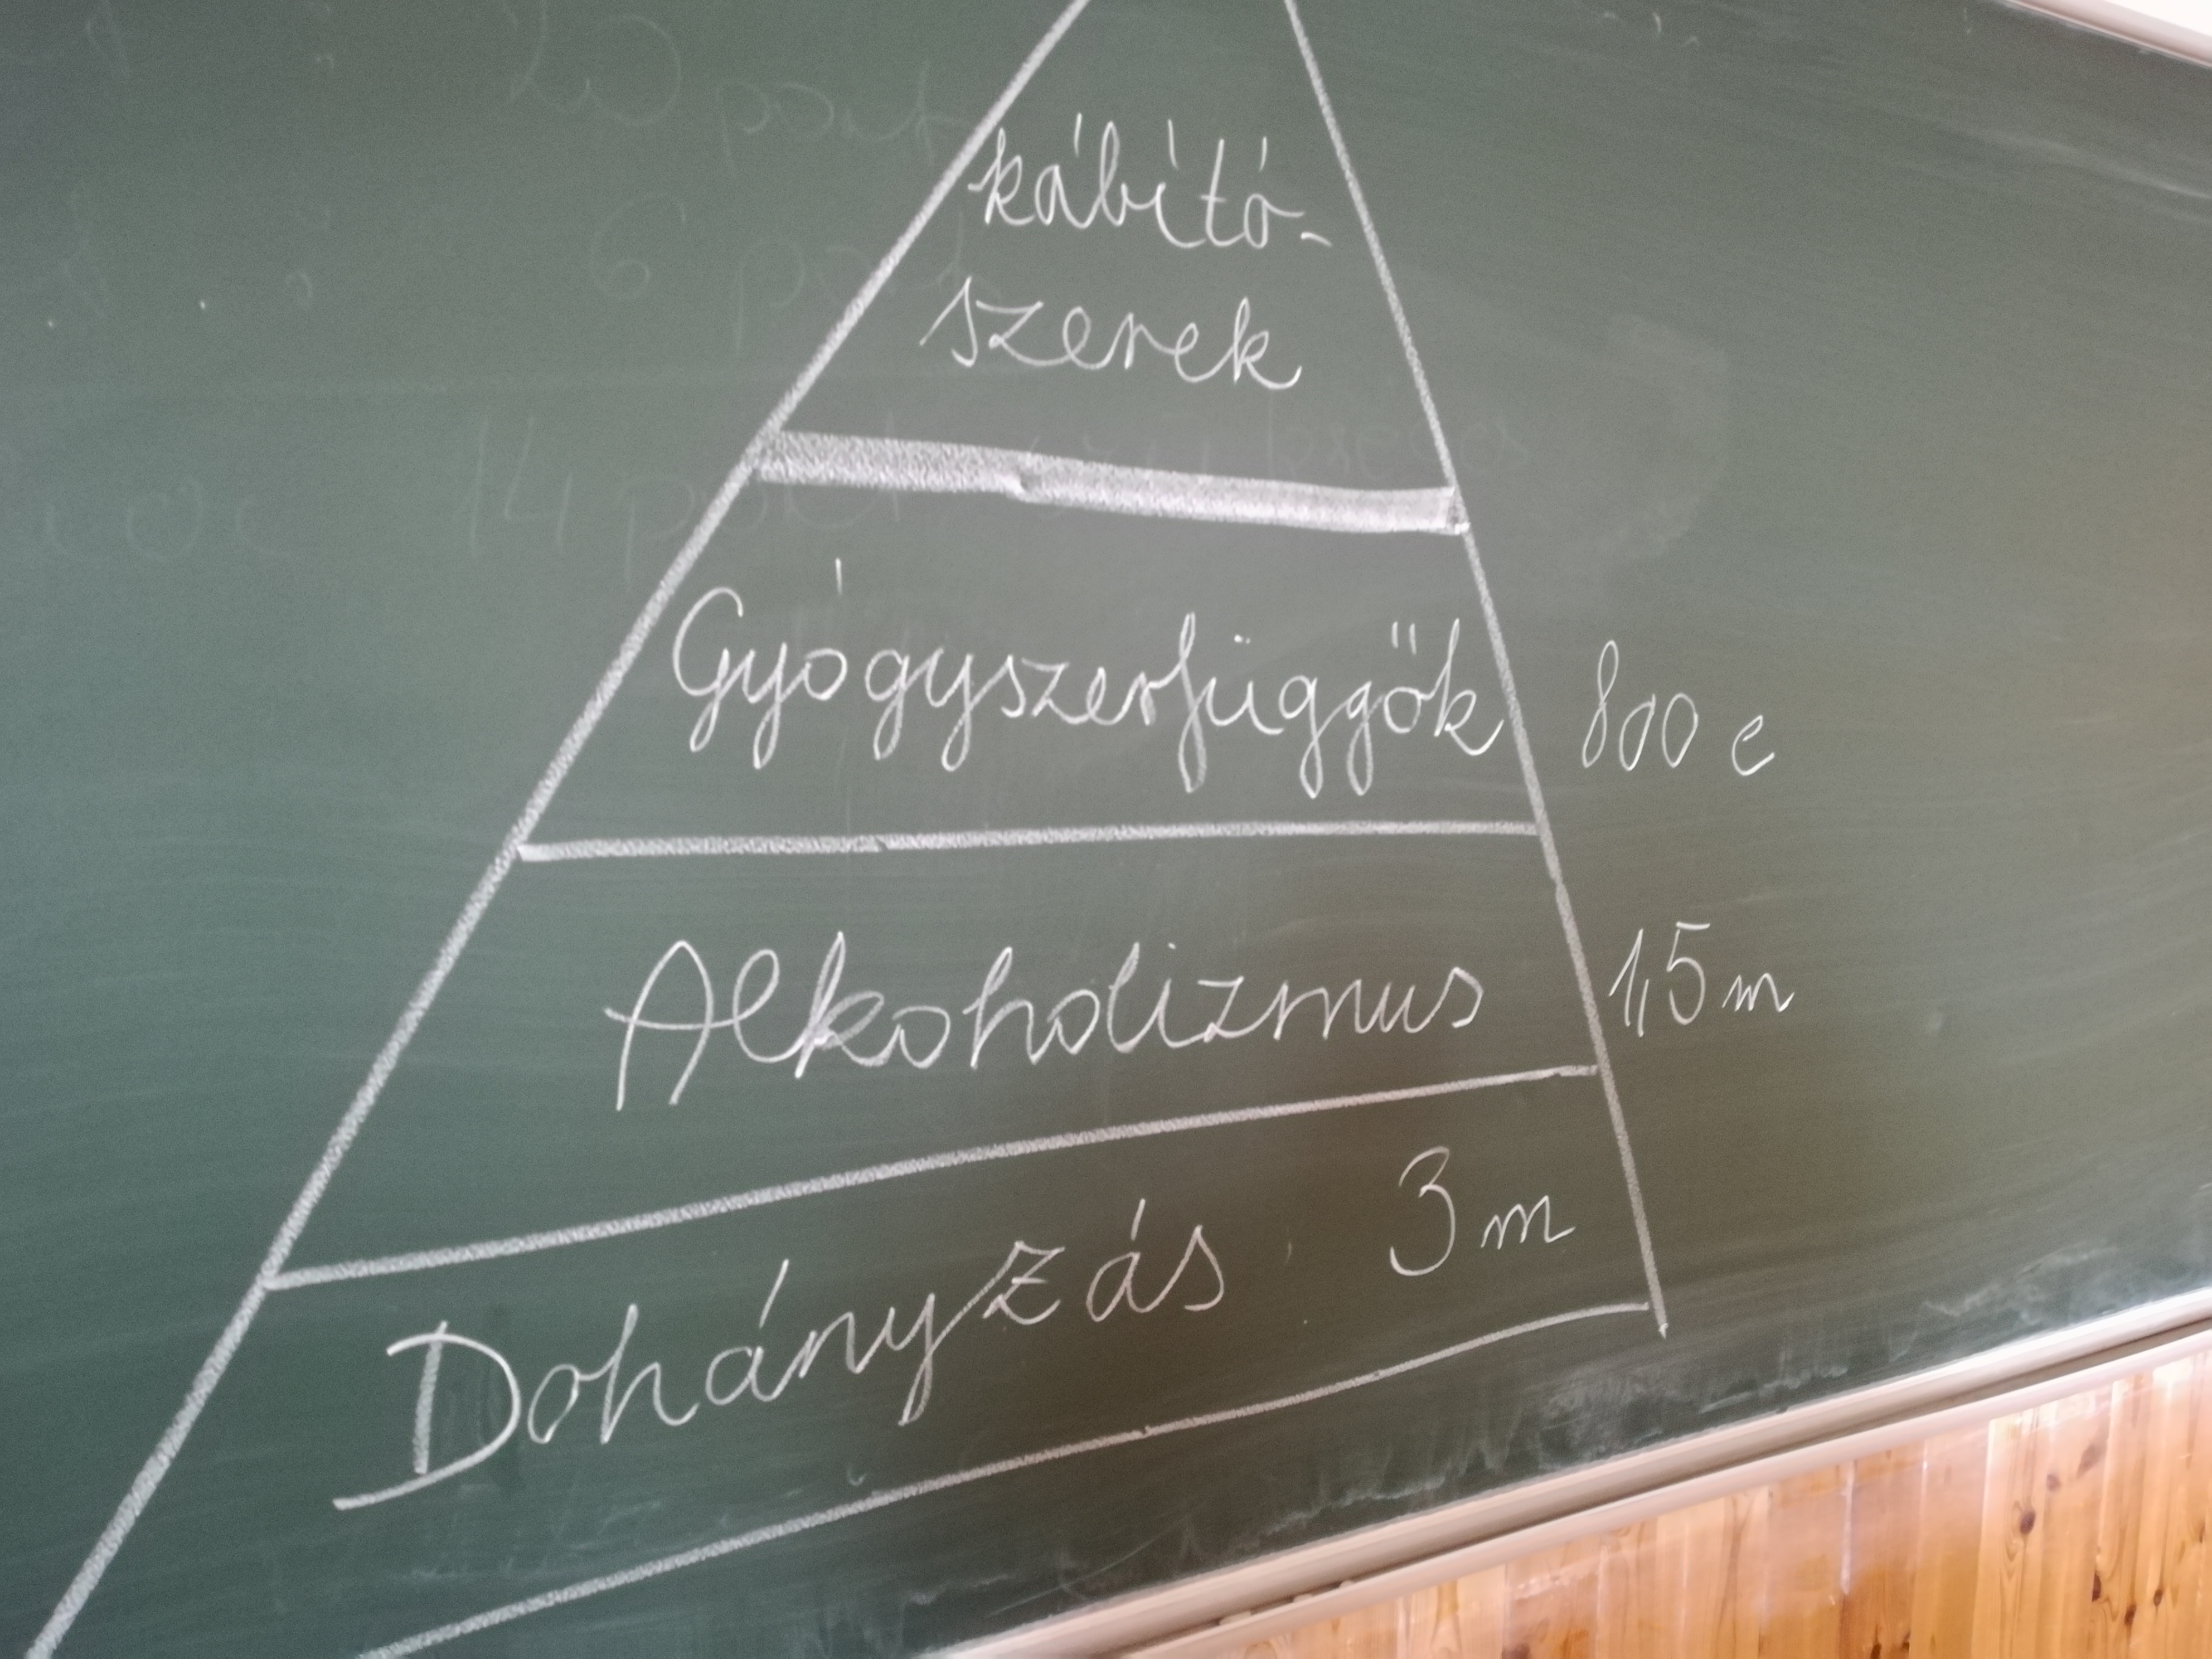 kábító-
szerek
Gyógyszerfüggők 800 e
Alkoholizmus 1,5 m
Dohányzás 3 m